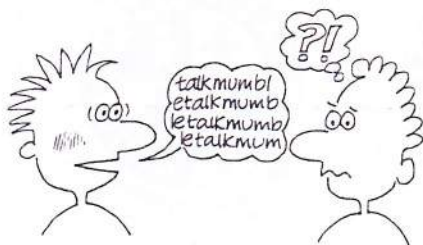 ?!
talkmumbl
etalkmumb
letalkmumb
letalkmum